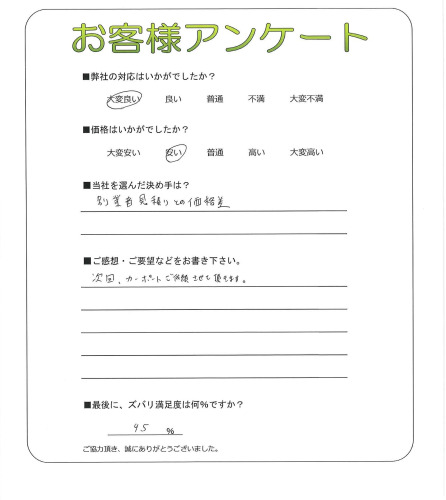 お客様アンケート
■弊社の対応はいかがでしたか？
大変良い 良い 普通 不満 大変不満
■価格はいかがでしたか？
大変安い 安い 普通 高い 大変高い
■当社を選んだ決め手は？
別業者見積りとの価格差
■ご感想・ご要望などをお書き下さい。
次回、カーポートご依頼させて頂きます。
■最後に、ズバリ満足度は何％ですか？
95 %
ご協力頂き、誠にありがとうございました。